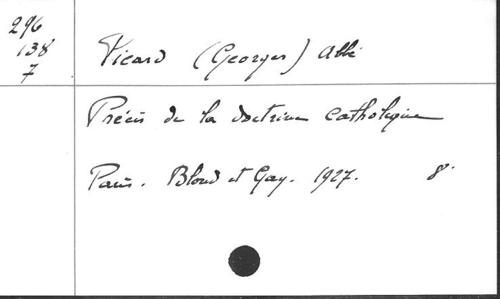 296
138
7
Picard (Georges) Abbé
Précis de la doctrine catholique
Paris. Bloud et Gay. 1927. 8°